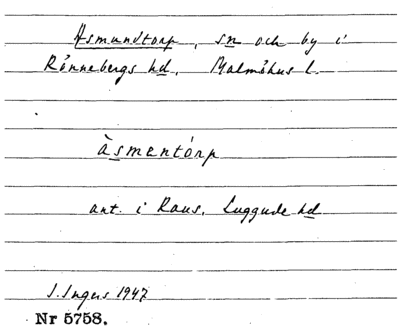 Asmundtorp, sn och by i
Rönnebergs hd, Malmöhus l.
àsmentórp
ant. i Raus, Luggude hd
S. Ingers 1947
Nr 5758.